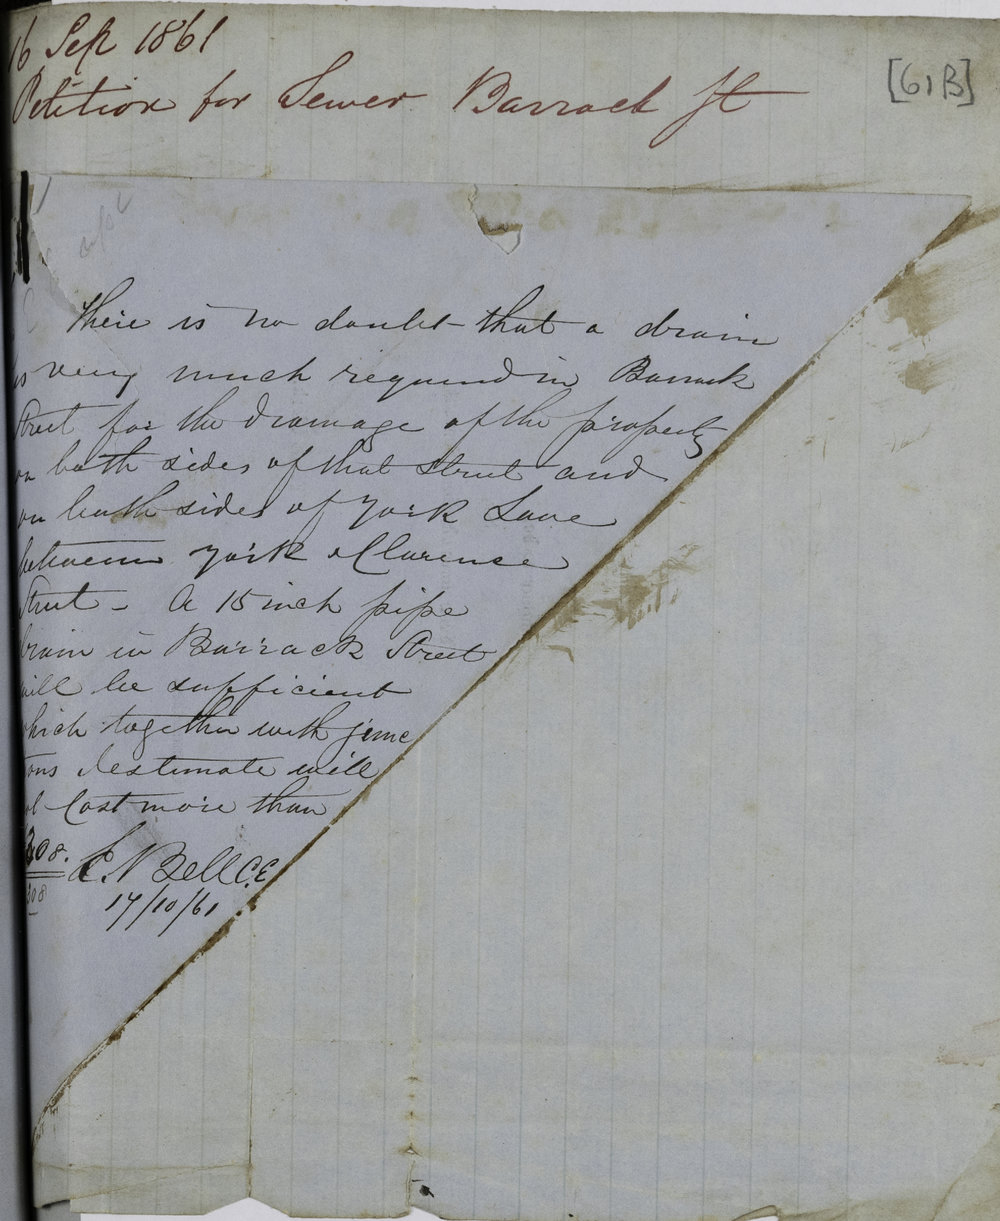 16 Sep 1861
Petition for Sewer Barrack St
[61B]
There is no doubt that a drain
is very much required in Barrack
Street for the drainage of the property
on both sides of that Street and
on both sides of York Lane
between York & Clarence
Street - A 15 inch pipe
drain in Barrack Street
will be sufficient
which together with junc
tions I estimate will
not Cost more than
308. E. Bell C.E
308
17/10/61